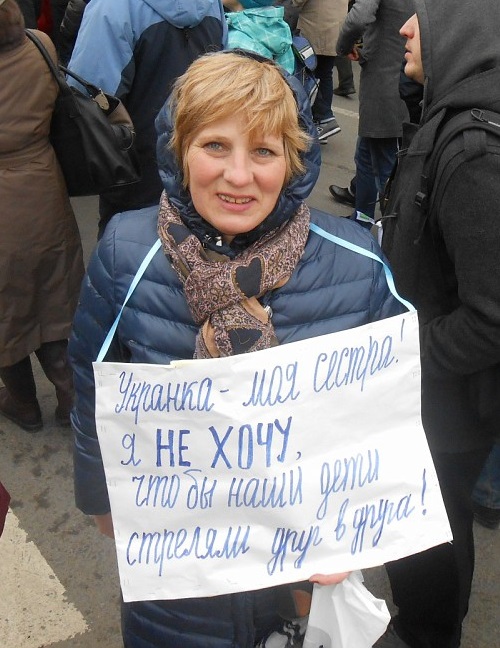 Украинка - моя сестра!
я НЕ ХОЧУ,
что бы наши дети
стреляли друг в друга!